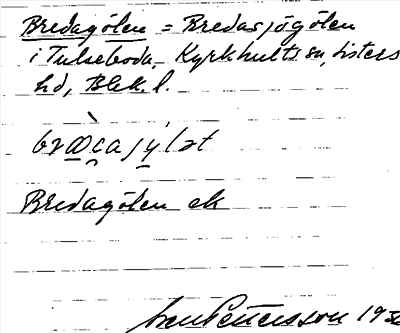 Bredagölen = Bredasjögölen
i Tulseboda, Kyrkhults sn, Listers
hd, Blek. l.
Bredagölen ek
Sven Pettersson 19